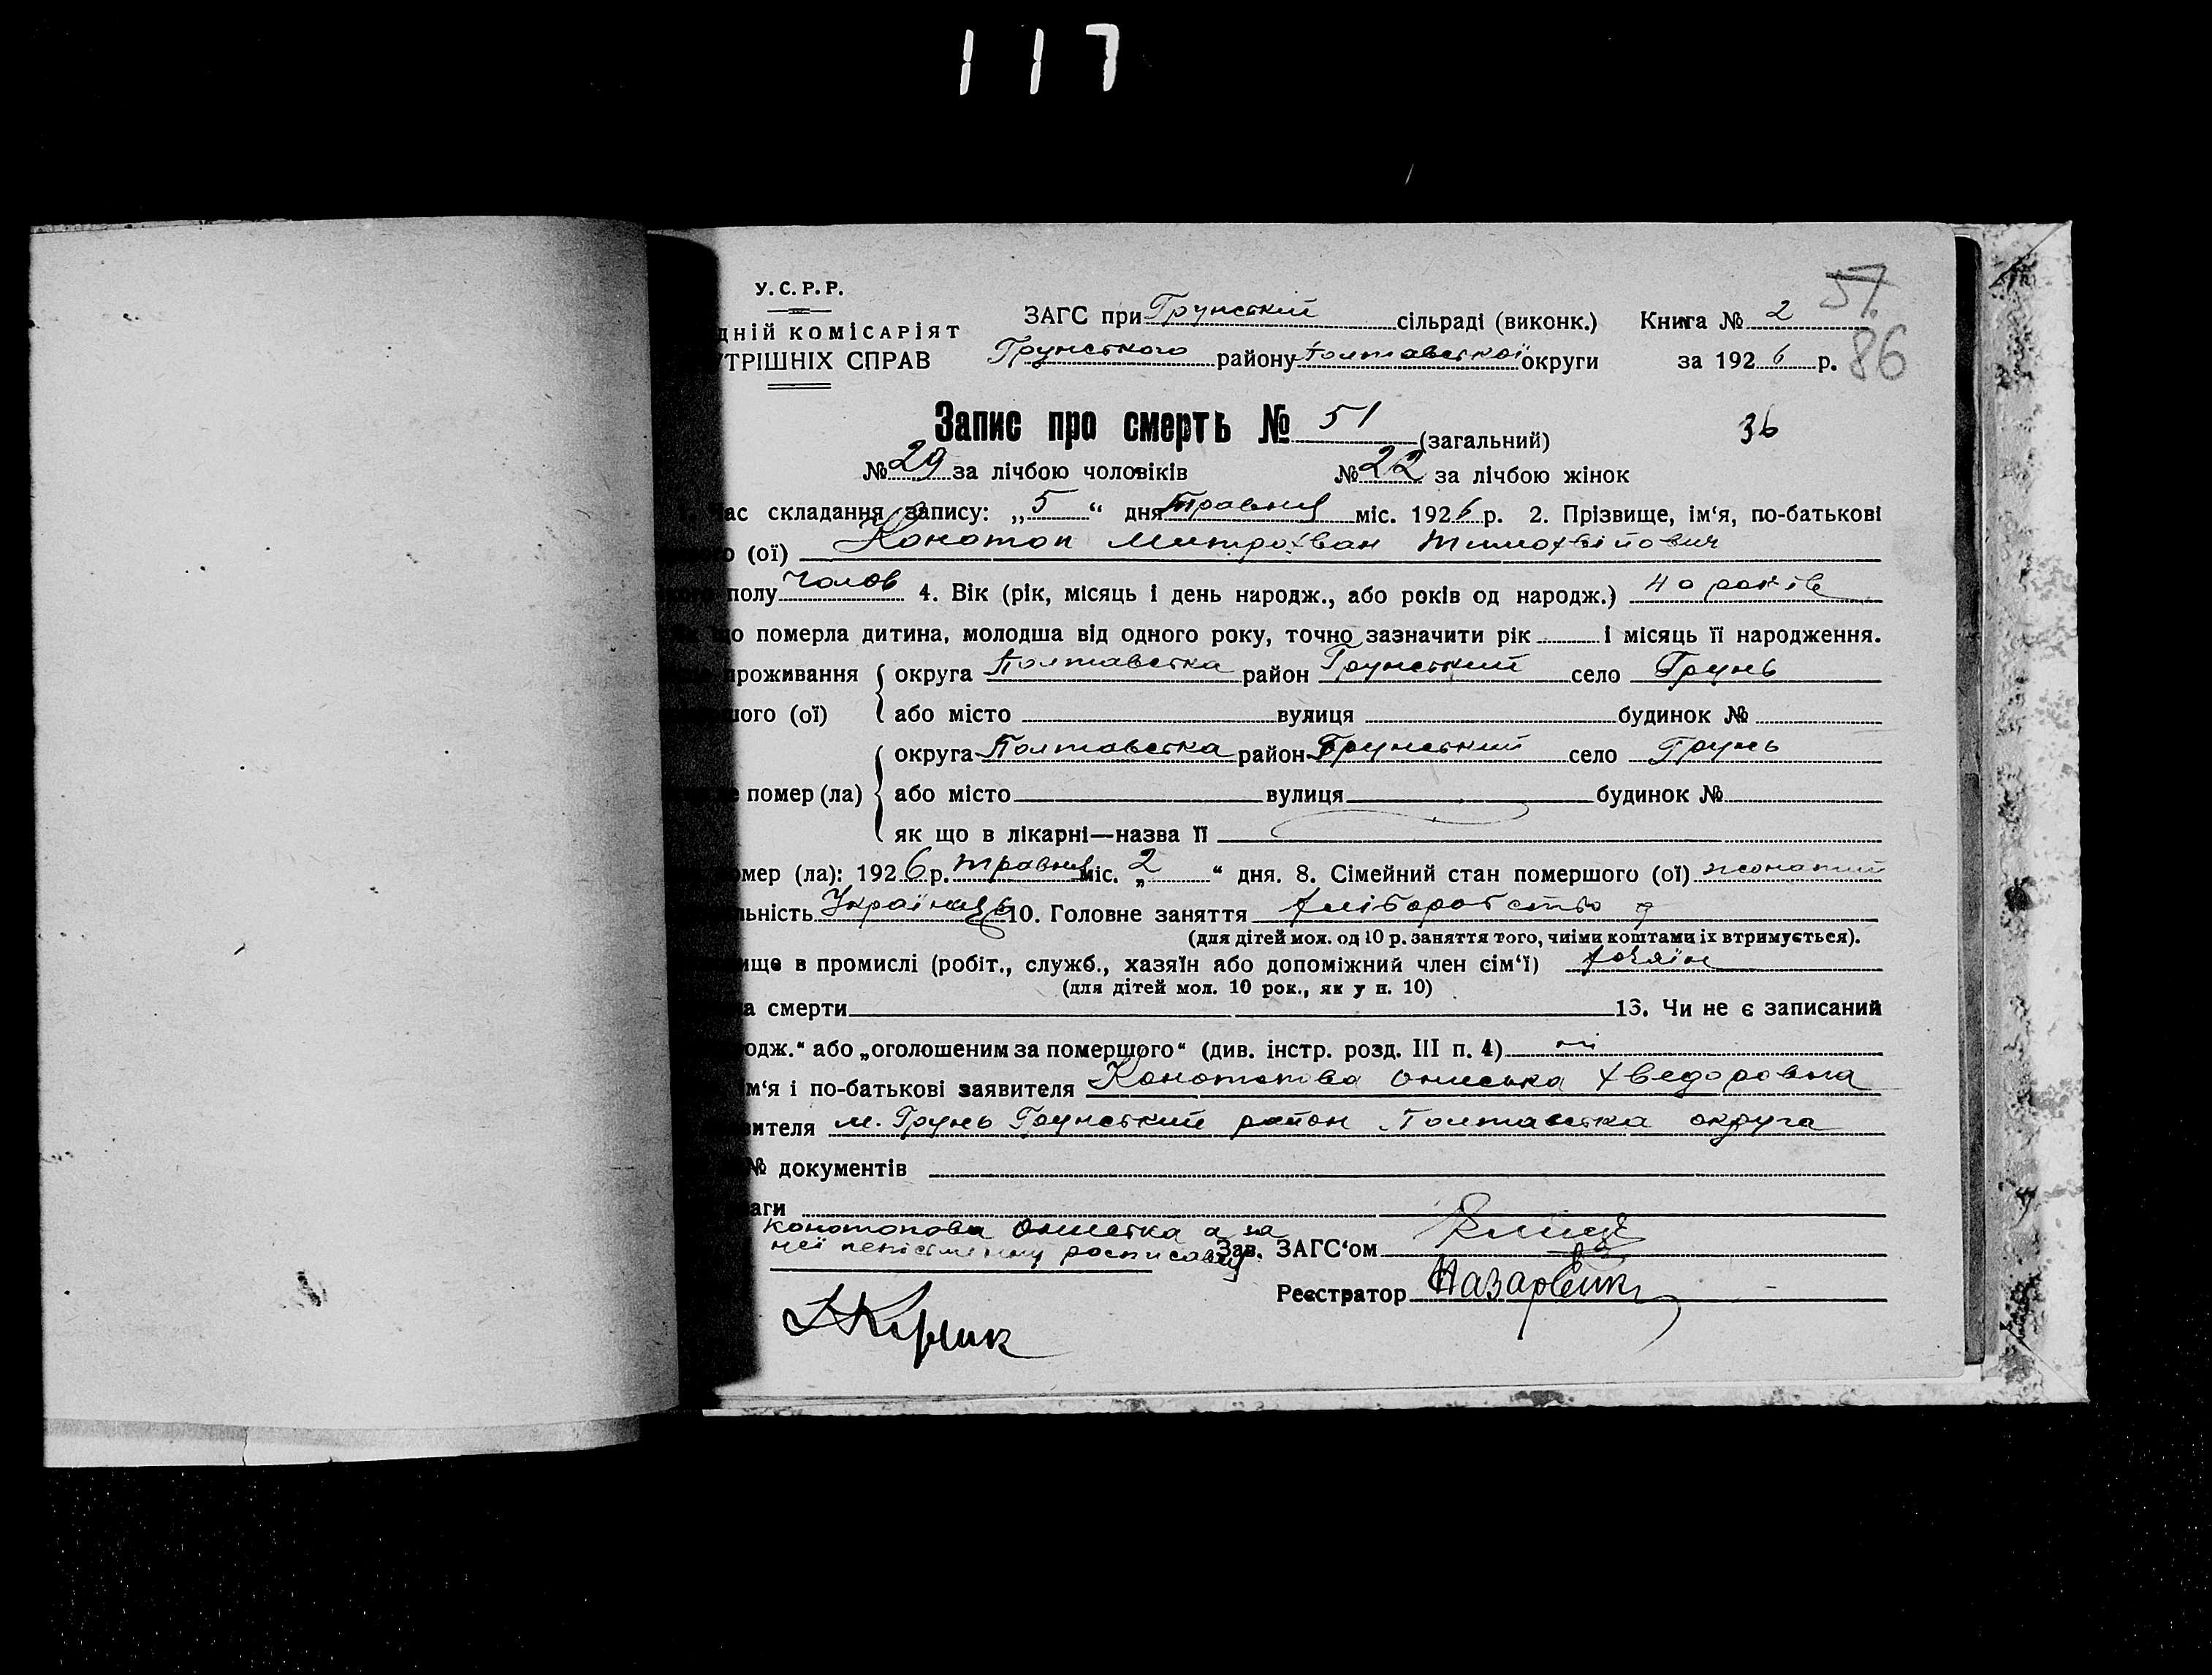 117
У.С.Р.Р.
ЗАГС при Грунській сільраді (виконк.) Книга № 2
57.
ДНІЙ КОМІСАРІЯТ
ТРІШНІХ СПРАВ
Грунського району Полтавської округи за 1926 р.
86
Запис про смерть № 51 (загальний)
36
№ 29 за лічбою чоловіків № 22 за лічбою жінок
час складання запису: „5“ дня травня міс. 1926 р. 2. Прізвище, ім‘я, по-батькові
(ої) Конотоп Митрохван Тимохвійович
полу Чолов 4. Вік (рік, місяць і день народж., або років од народж.) 40 років
що померла дитина, молодша від одного року, точно зазначити рік і місяць її народження.
проживання округа Полтавська район Грунський село Грунь
ого (ої) або місто вулиця будинок №
округа Полтавська район Грунський село Грунь
помер (ла) або місто вулиця будинок №
як що в лікарні—назва її
мер (ла): 1926 р. травня міс. „2“ дня. 8. Сімейний стан помершого (ої) жонатий
льність Українець 10. Головне заняття хліборобство
(для дітей мол. од 10 р. заняття того, чиїми коштами їх втримується).
ище в промислі (робіт., служб., хазяїн або допоміжний член сім‘ї) хазяїн
(для дітей мол. 10 рок., як у п. 10)
а смерти 13. Чи не є записаний
одж.“ або „оголошеним за помершого“ (див. інстр. розд. III п. 4) ні
м‘я і по-батькові заявителя Конотопова Ониська Хведоровна
вителя м. Грунь Грунський район Полтавська округа
№ документів
аги
Конотопова Ониська а за
неї неписьменну росписавсь
Зав. ЗАГС‘ом
Реєстратор